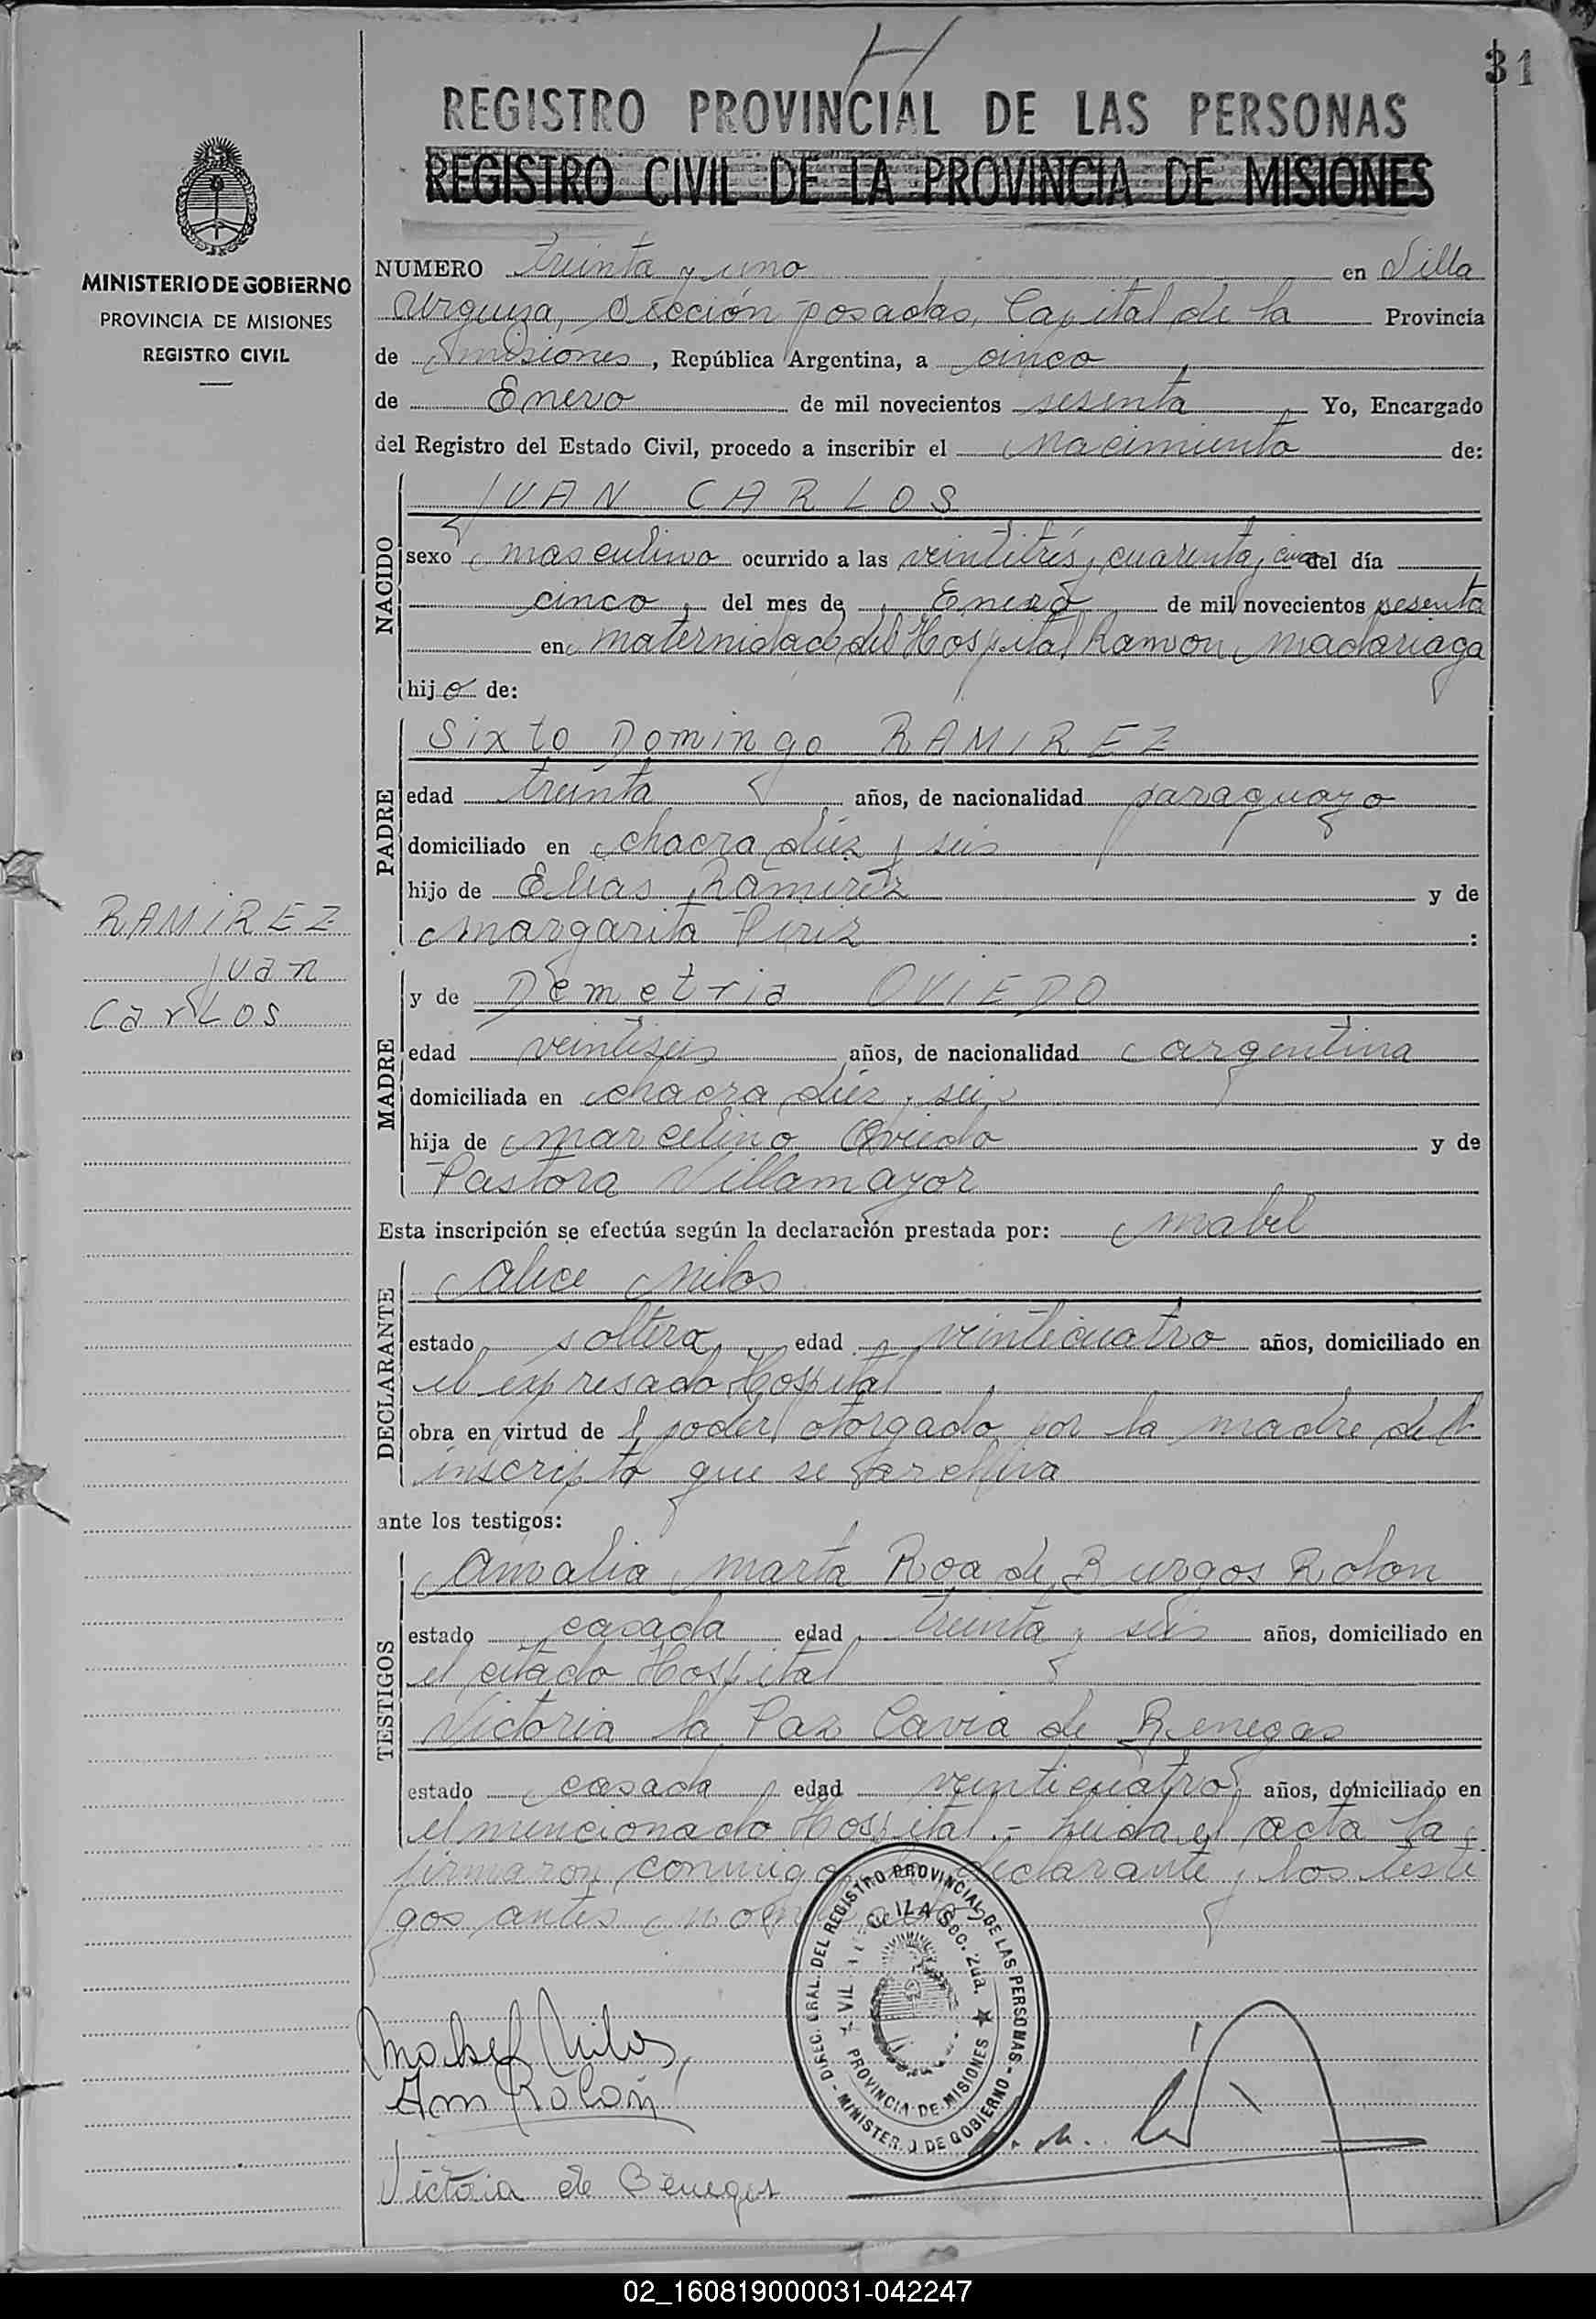 31
REGISTRO PROVINCIAL DE LAS PERSONAS
REGISTRO CIVIL DE LA PROVINCIA DE MISIONES
MINISTERIO DE GOBIERNO
PROVINCIA DE MISIONES
REGISTRO CIVIL
RAMIREZ
Juan
Carlos
NUMERO treinta y uno en Villa
Urquiza, Sección posadas, Capital de la Provincia
de Misiones, República Argentina, a cinco
de Enero de mil novecientos sesenta Yo, Encargado
del Registro del Estado Civil, procedo a inscribir el Nacimiento de:
NACIDO
JUAN CARLOS
sexo masculino ocurrido a las veintitrés y cuarenta y del día
cinco del mes de Enero de mil novecientos sesenta
en maternidad del Hospital Ramon Madariaga
hijo de:
PADRE
Sixto Domingo RAMIREZ
edad treinta años, de nacionalidad paraguayo
domiciliado en chacra diez y seis
hijo de Elias Ramirez y de
Margarita Perez :
MADRE
y de Demetria OVIEDO
edad veintiseis años, de nacionalidad argentina
domiciliada en chacra diez y seis
hija de Marcelino Oviedo y de
Pastora Villamayor
Esta inscripción se efectúa según la declaración prestada por: Mabel
DECLARANTE
Alice Milos
estado soltera edad veinticuatro años, domiciliado en
el expresado Hospital
obra en virtud de l poder otorgado por la madre del
inscripto que se archiva
ante los testigos:
TESTIGOS
Amalia Marta Roa de Burgos Rolon
estado casada edad treinta y seis años, domiciliado en
el citado Hospital
Victoria la Paz Cavia de Benegas
estado casada edad veinticuatro años, domiciliado en
el mencionado Hospital.- Leida el acta la
firmaron conmigo declarante y los testi
gos antes
DIREC. GRAL. DEL REGISTRO PROVINCIAL DE LAS PERSONAS - MINISTERIO DE GOBIERNO -
IZA Sec. 2da.
PROVINCIA DE MISIONES
Mabel Milos
Am Rolón
Victoria de Benegas
02_160819000031-042247